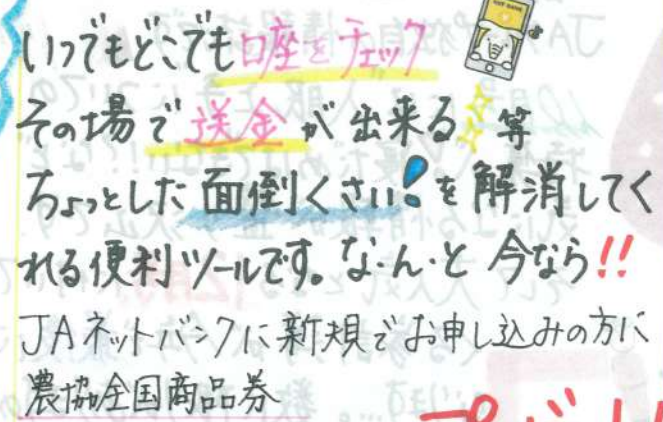 いつでもどこでも口座をチェック
その場で送金が出来る 等
ちょっとした面倒くさい!を解消してく
れる便利ツールです。な・ん・と 今なら!!
JAネットバンクに新規でお申し込みの方に
農協全国商品券